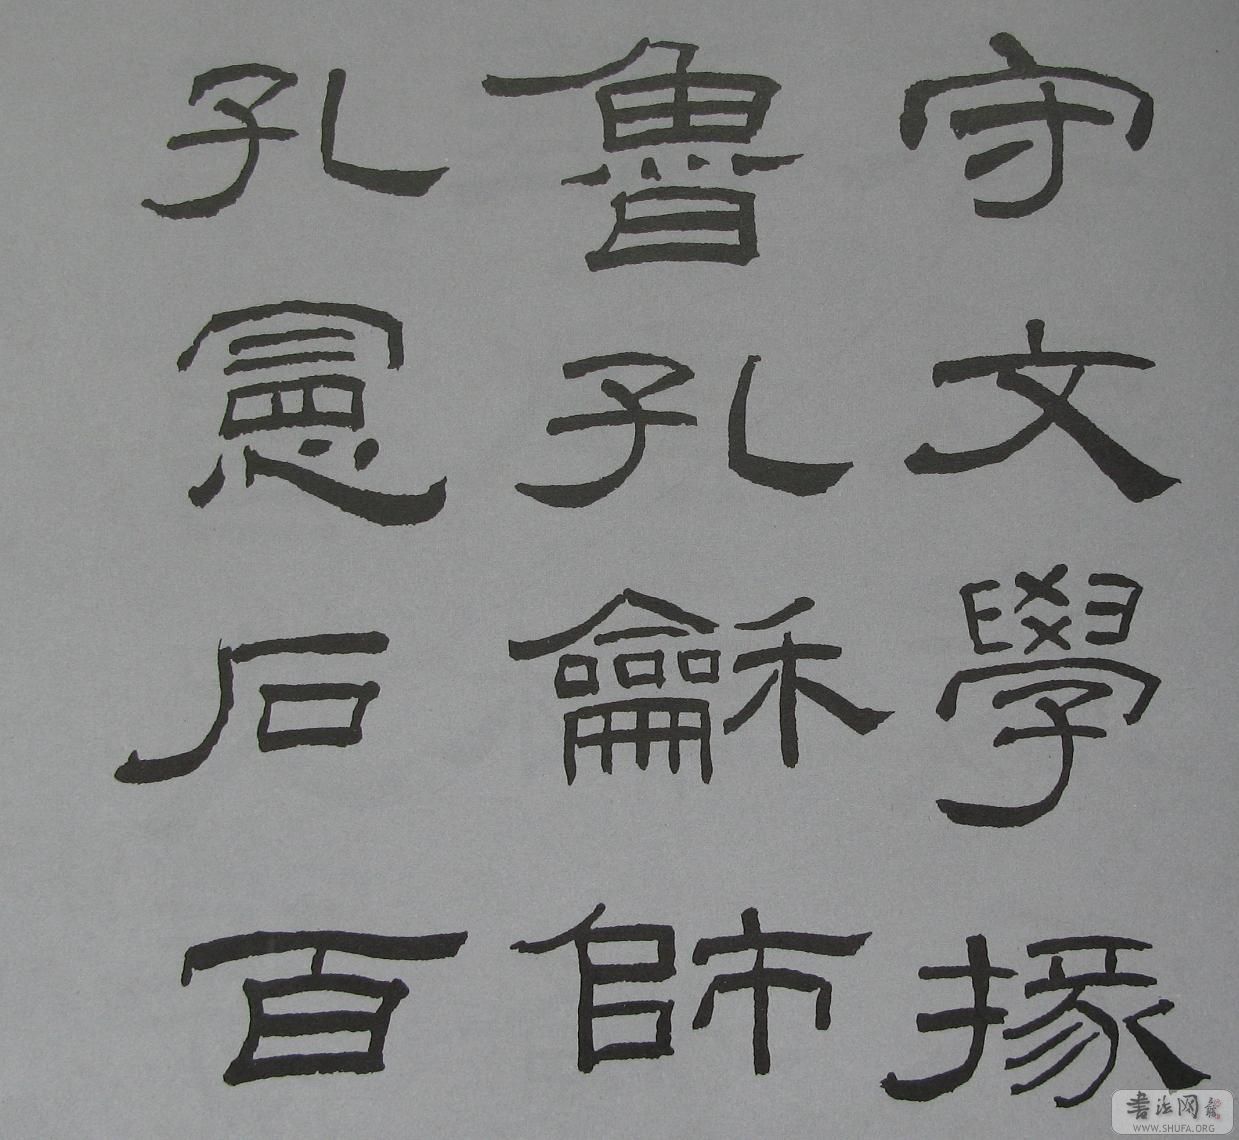 守文學掾
魯孔龢師
孔憲石百
書法网
WWW.SHUFA.ORG